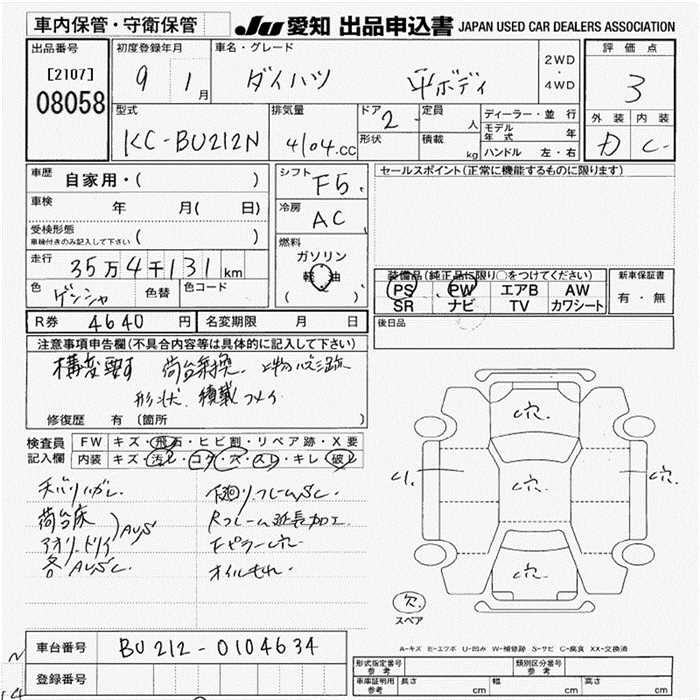 車内保管・守衛保管
JU 愛知 出品申込書 JAPAN USED CAR DEALERS ASSOCIATION
出品番号
[2107]
08058
初度登録年月
9 1月
車名・グレード
ダイハツ 平ボディ
2WD
・
4WD
評価点
3
外装 内装
D C-
型式
KC-BU212N
排気量
4104.cc
ドア
2
形状
定員
人
積載
kg
ディーラー・並行
モデル年式 年
ハンドル 左・右
車歴 自家用・( )
車検 年 月( 日)
受検形態
車検付きのみ記入して下さい ( )
走行 35万4千131km
色 色替 色コード
シフト F5
冷房 AC
燃料
ガソリン
軽油
( )
セールスポイント(正常に機能するものに限ります)
装備品(純正品に限り○をつけてください)
PS PW エアB AW
SR ナビ TV カワシート
新車保証書
有・無
後日品
R券 4640 円 名変期限 月 日
注意事項申告欄(不具合内容等は具体的に記入して下さい)
構変要す 荷台乗換
形状、積載
修復歴 有 (箇所 )
検査員
記入欄
FW キズ・飛石・ヒビ割・リペア跡・X要
内装 キズ・汚レ・コゲ・穴・スレ・キレ・破レ
天バリハガレ.
荷台床
アオリ.トリイ AUS
各AUSC.
下廻り.フレームSC.
Rフレーム延長加工.
Fピラー穴.
オイルもれ.
穴.
穴.
穴.
欠.
スペア
A-キズ E-エクボ U-凹み W-補修跡 S-サビ C-腐食 XX-交換済
車台番号 BU212-0104634
登録番号
形式指定番号
参考
類別区分番号
参考
車庫証明用
参考
長さ cm 幅 cm 高さ cm